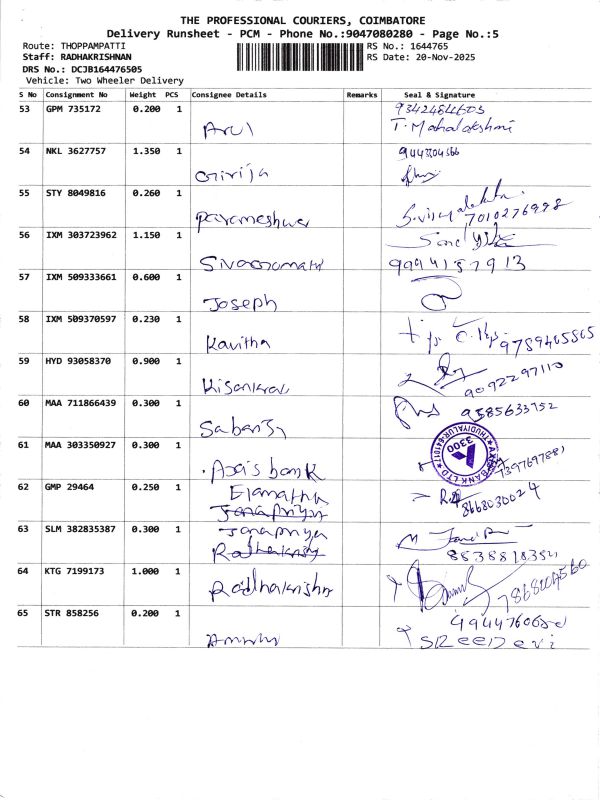 THE PROFESSIONAL COURIERS, COIMBATORE
Delivery Runsheet - PCM - Phone No.:9047080280 - Page No.:5
Route: THOPPAMPATTI
RS No.: 1644765
Staff: RADHAKRISHNAN
RS Date: 20-Nov-2025
DRS No.: DCJB164476505
Vehicle: Two Wheeler Delivery
S No Consignment No Weight PCS Consignee Details Remarks Seal & Signature
53 GPM 735172 0.200 1
Arul
T. Mahalakshmi
54 NKL 3627757 1.350 1
Girija
55 STY 8049816 0.260 1
Parameshwar
7010276998
56 IXM 303723962 1.150 1
9994157913
57 IXM 509333661 0.600 1
Joseph
58 IXM 509370597 0.230 1
Kavitha
9789465565
59 HYD 93058370 0.900 1
9092297110
60 MAA 711866439 0.300 1
9585633952
61 MAA 303350927 0.300 1
Axis bank
AXIS BANK LTD
THUDIYALUR-641017
3300
62 GMP 29464 0.250 1
Elamathi
Janapriya
8668030024
63 SLM 382835387 0.300 1
Janapriya
Radhakrish
64 KTG 7199173 1.000 1
Radhakrishn
65 STR 858256 0.200 1
SREEDevi